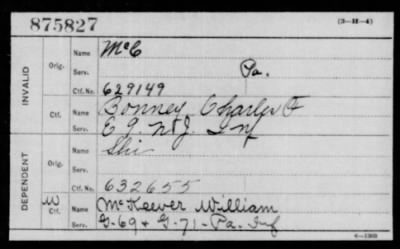 875827
(3-H-4)
INVALID
Orig.
Name McC
Serv. Pa.
Ctf. No. 629149
Ctf.
Name Bonney, Charles F
Serv. E 9. N.J. Inf
DEPENDENT
Orig.
Name Shi
Serv.
Ctf. No. 632655
W
Ctf.
Name McKeever William
Serv. G-69 & G-71- Pa. Inf